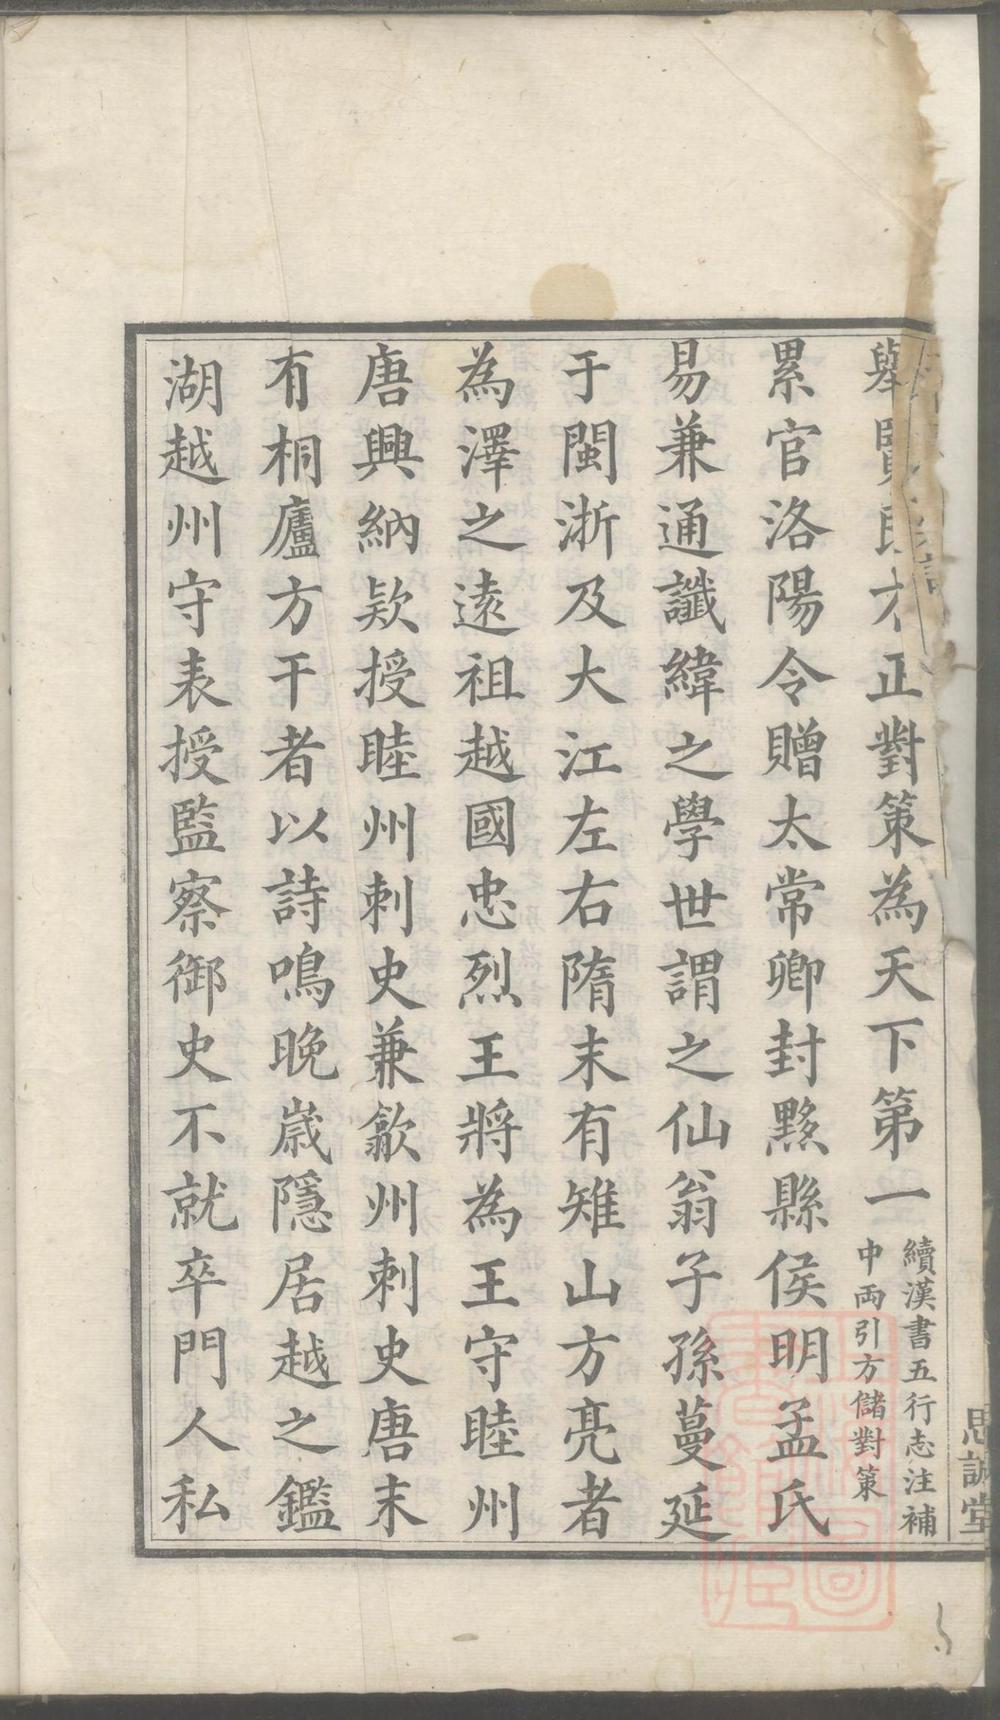 舉賢良方正對策為天下第一續漢書五行志注補
中兩引方儲對策
累官洛陽令贈太常卿封黟縣侯明孟氏
易兼通讖緯之學世謂之仙翁子孫蔓延
于閩浙及大江左右隋末有雉山方亮者
為澤之遠祖越國忠烈王將為王守睦州
唐興納欵授睦州刺史兼歙州刺史唐末
有桐廬方干者以詩鳴晚嵗隱居越之鑑
湖越州守表授監察御史不就卒門人私
思誠堂